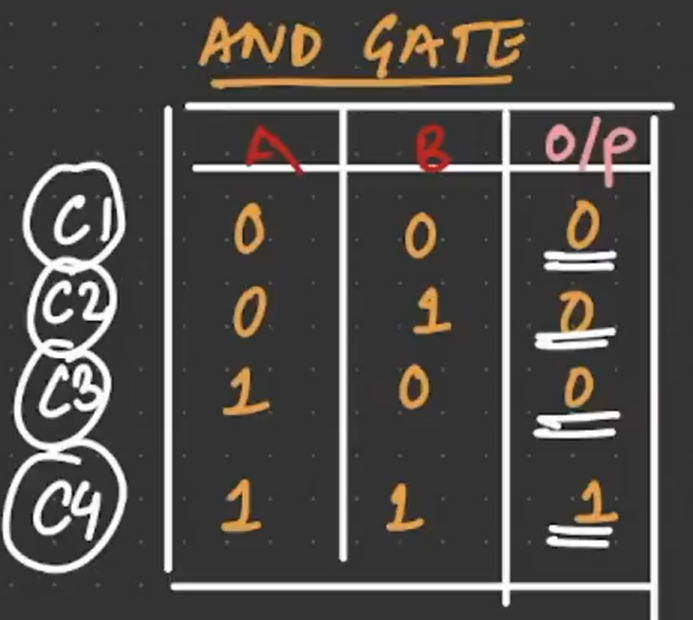 AND GATE
A B O/P
C1 0 0 0
C2 0 1 0
C3 1 0 0
C4 1 1 1